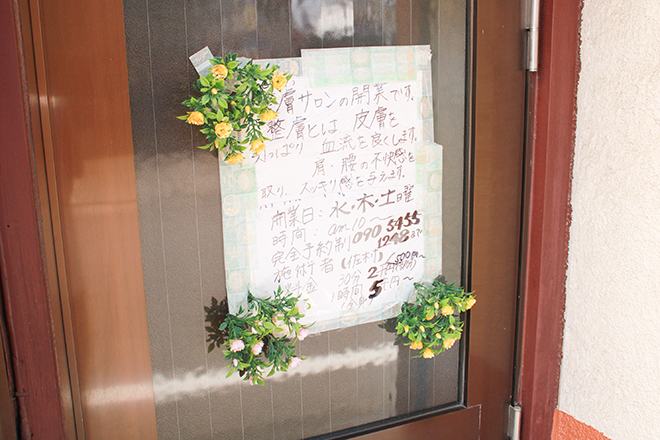 膚サロンの開業です。
整膚とは 皮膚を
引っぱり 血流を良くします。
肩・腰の不快感を
取り、スッキリ感を与えます。
開業日：水・木・土曜
時間：am10～
完全予約制 090 5455
1248まで
施術者(佐村)
30分 2千円
1時間 5千円～